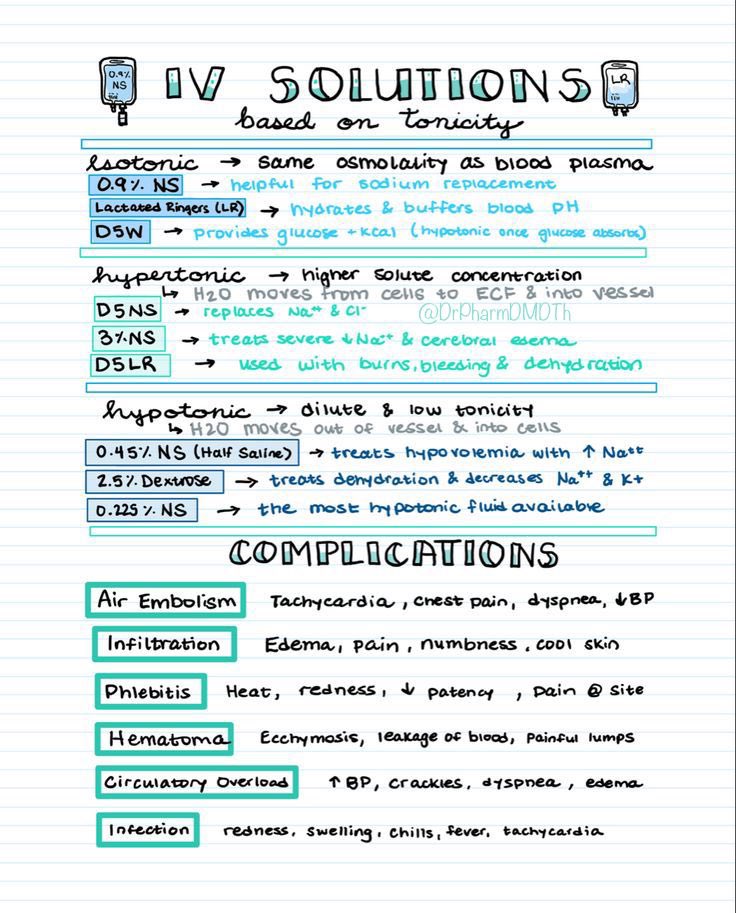 0.9% NS
IV SOLUTIONS
LR
based on tonicity
Isotonic → same osmolality as blood plasma
0.9% NS → helpful for sodium replacement
Lactated Ringers (LR) → hydrates & buffers blood pH
D5W → provides glucose + kcal (hypotonic once glucose absorbs)
hypertonic → higher solute concentration
↳ H2O moves from cells to ECF & into vessel
D5NS → replaces Na⁺⁺ & Cl⁻
@DrPharmDMDTh
3% NS → treats severe ↓Na⁺⁺ & cerebral edema
D5LR → used with burns, bleeding & dehydration
hypotonic → dilute & low tonicity
↳ H2O moves out of vessel & into cells
0.45% NS (Half Saline) → treats hypovolemia with ↑ Na⁺⁺
2.5% Dextrose → treats dehydration & decreases Na⁺⁺ & K+
0.225% NS → the most hypotonic fluid available
COMPLICATIONS
Air Embolism Tachycardia, chest pain, dyspnea, ↓BP
Infiltration Edema, pain, numbness, cool skin
Phlebitis Heat, redness, ↓ patency, pain @ site
Hematoma Ecchymosis, leakage of blood, painful lumps
Circulatory Overload ↑BP, crackles, dyspnea, edema
Infection redness, swelling, chills, fever, tachycardia